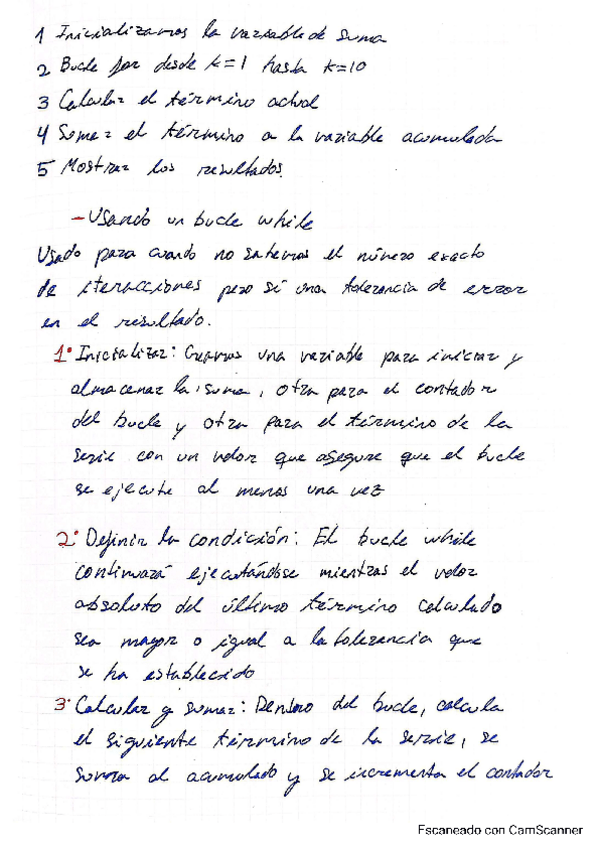 1 Inicializamos la variable de suma
2 Bucle for desde k=1 hasta k=10
3 Calcular el término actual
4 Sumar el término a la variable acumulada
5 Mostrar los resultados.
- Usando un bucle while
Usado para cuando no sabemos el número exacto
de iteracciones pero sí una tolerancia de error
en el resultado.
1º Inicializar: Creamos una variable para iniciar y
almacenar la suma, otra para el contador
del bucle y otra para el término de la
serie con un valor que asegure que el bucle
se ejecute al menos una vez
2º Definir la condición: El bucle while
continuará ejecutándose mientras el valor
absoluto del último término calculado
sea mayor o igual a la tolerancia que
se ha establecido
3º Calcular y sumar: Dentro del bucle, calcula
el siguiente término de la serie, se
suma al acumulado y se incrementa el contador
Escaneado con CamScanner